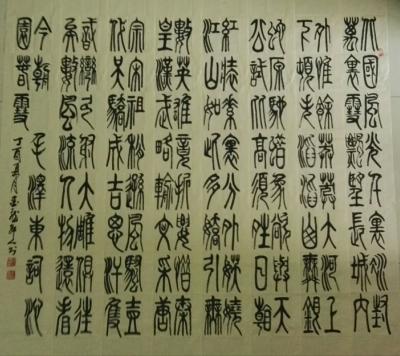 北國風光千裏冰封
萬裏雪飄望長城內
外惟餘莽莽大河上
下頓失滔滔山舞銀
蛇原馳蠟象欲與天
公試比高須晴日看
紅裝素裹分外妖嬈
江山如此多嬌引無
數英雄競折腰惜秦
皇漢武略輸文采唐
宗宋祖稍遜風騷壹
代天驕成吉思汗隻
識彎弓射大雕俱往
矣數風流人物還看
今朝 毛澤東詞沁
園春雪 丁酉